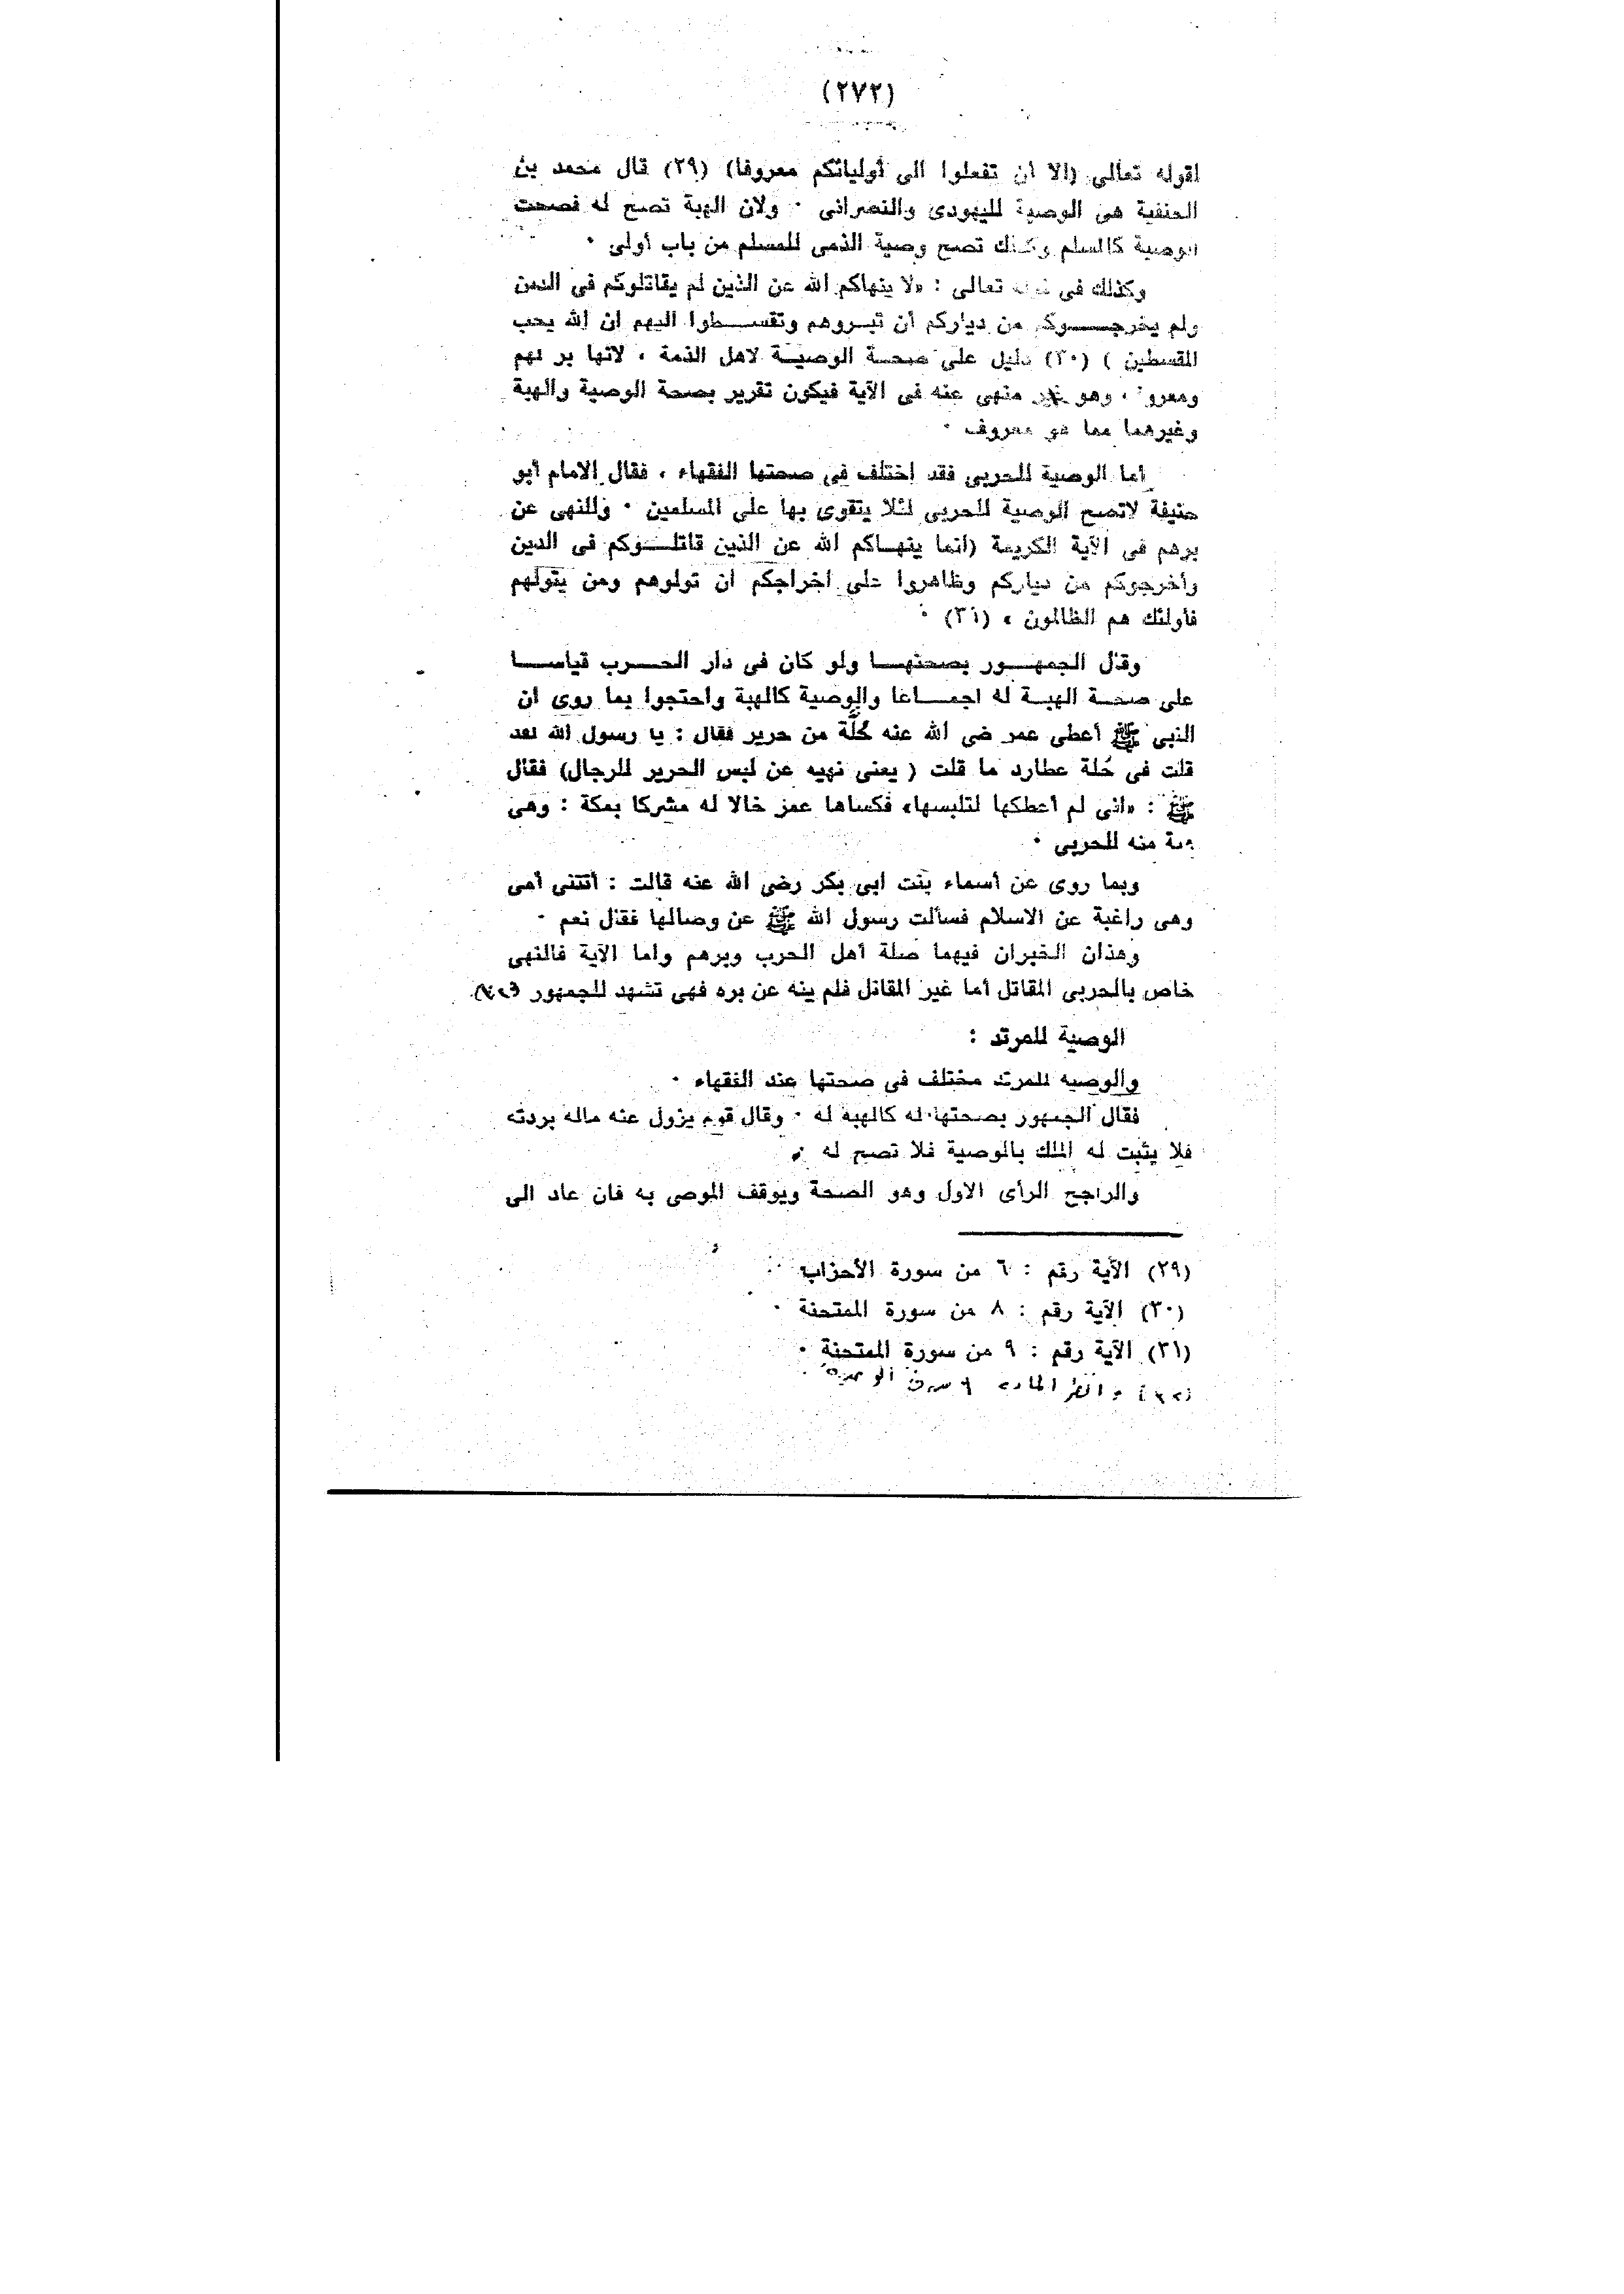 (٢٧٢)
لقوله تعالى (الا ان تفعلوا الى أوليائكم معروفا) (٢٩) قال محمد بن
الحنفية هى الوصية لليهودى والنصرانى ٠ ولان الهبة تصح له فصحت
الوصية كالمسلم وكذلك تصح وصية الذمى للمسلم من باب أولى ٠
وكذلك فى قوله تعالى : «لا ينهاكم الله عن الذين لم يقاتلوكم فى الدين
ولم يخرجوكم من دياركم أن تبروهم وتقسطوا اليهم ان الله يحب
المقسطين ) (٣٠) دليل على صحة الوصية لاهل الذمة ، لانها بر لهم
ومعروف ، وهو غير منهى عنه فى الآية فيكون تقرير بصحة الوصية والهبة
وغيرهما مما هو معروف ٠
أما الوصية للحربى فقد اختلف فى صحتها الفقهاء ، فقال الامام أبو
حنيفة لاتصح الوصية للحربى لئلا يتقوى بها على المسلمين ٠ وللنهى عن
برهم فى الآية الكريمة (انما ينهاكم الله عن الذين قاتلوكم فى الدين
وأخرجوكم من دياركم وظاهروا على اخراجكم ان تولوهم ومن يتولهم
فأولئك هم الظالمون » (٣١) ٠
وقال الجمهور بصحتها ولو كان فى دار الحرب قياسا
على صحة الهبة له اجماعا والوصية كالهبة واحتجوا بما روى ان
النبى ﷺ أعطى عمر ضى الله عنه حُلَّة من حرير فقال : يا رسول الله لقد
قلت فى حُلة عطارد ما قلت ( يعنى نهيه عن لبس الحرير للرجال) فقال
ﷺ : «انى لم أعطكها لتلبسها» فكساها عمر خالا له مشركا بمكة : وهى
هبة منه للحربى ٠
وبما روى عن أسماء بنت ابى بكر رضى الله عنه قالت : أتتنى أمى
وهى راغبة عن الاسلام فسألت رسول الله ﷺ عن وصالها فقال نعم ٠
وهذان الخبران فيهما صلة أهل الحرب وبرهم واما الآية فالنهى
خاص بالحربى المقاتل أما غير المقاتل فلم ينه عن بره فهى تشهد للجمهور
الوصية للمرتد :
والوصيه للمرتد مختلف فى صحتها عند الفقهاء ٠
فقال الجمهور بصحتها له كالهبة له ٠ وقال قوم يزول عنه ماله بردته
فلا يثبت له الملك بالوصية فلا تصح له ٠
والراجح الرأى الاول وهو الصحة ويوقف الموصى به فان عاد الى
(٢٩) الآية رقم : ٦ من سورة الأحزاب
(٣٠) الآية رقم : ٨ من سورة الممتحنة ٠
(٣١) الآية رقم : ٩ من سورة الممتحنة ٠
وانظر المادة ٩ من ق الوصية ٠